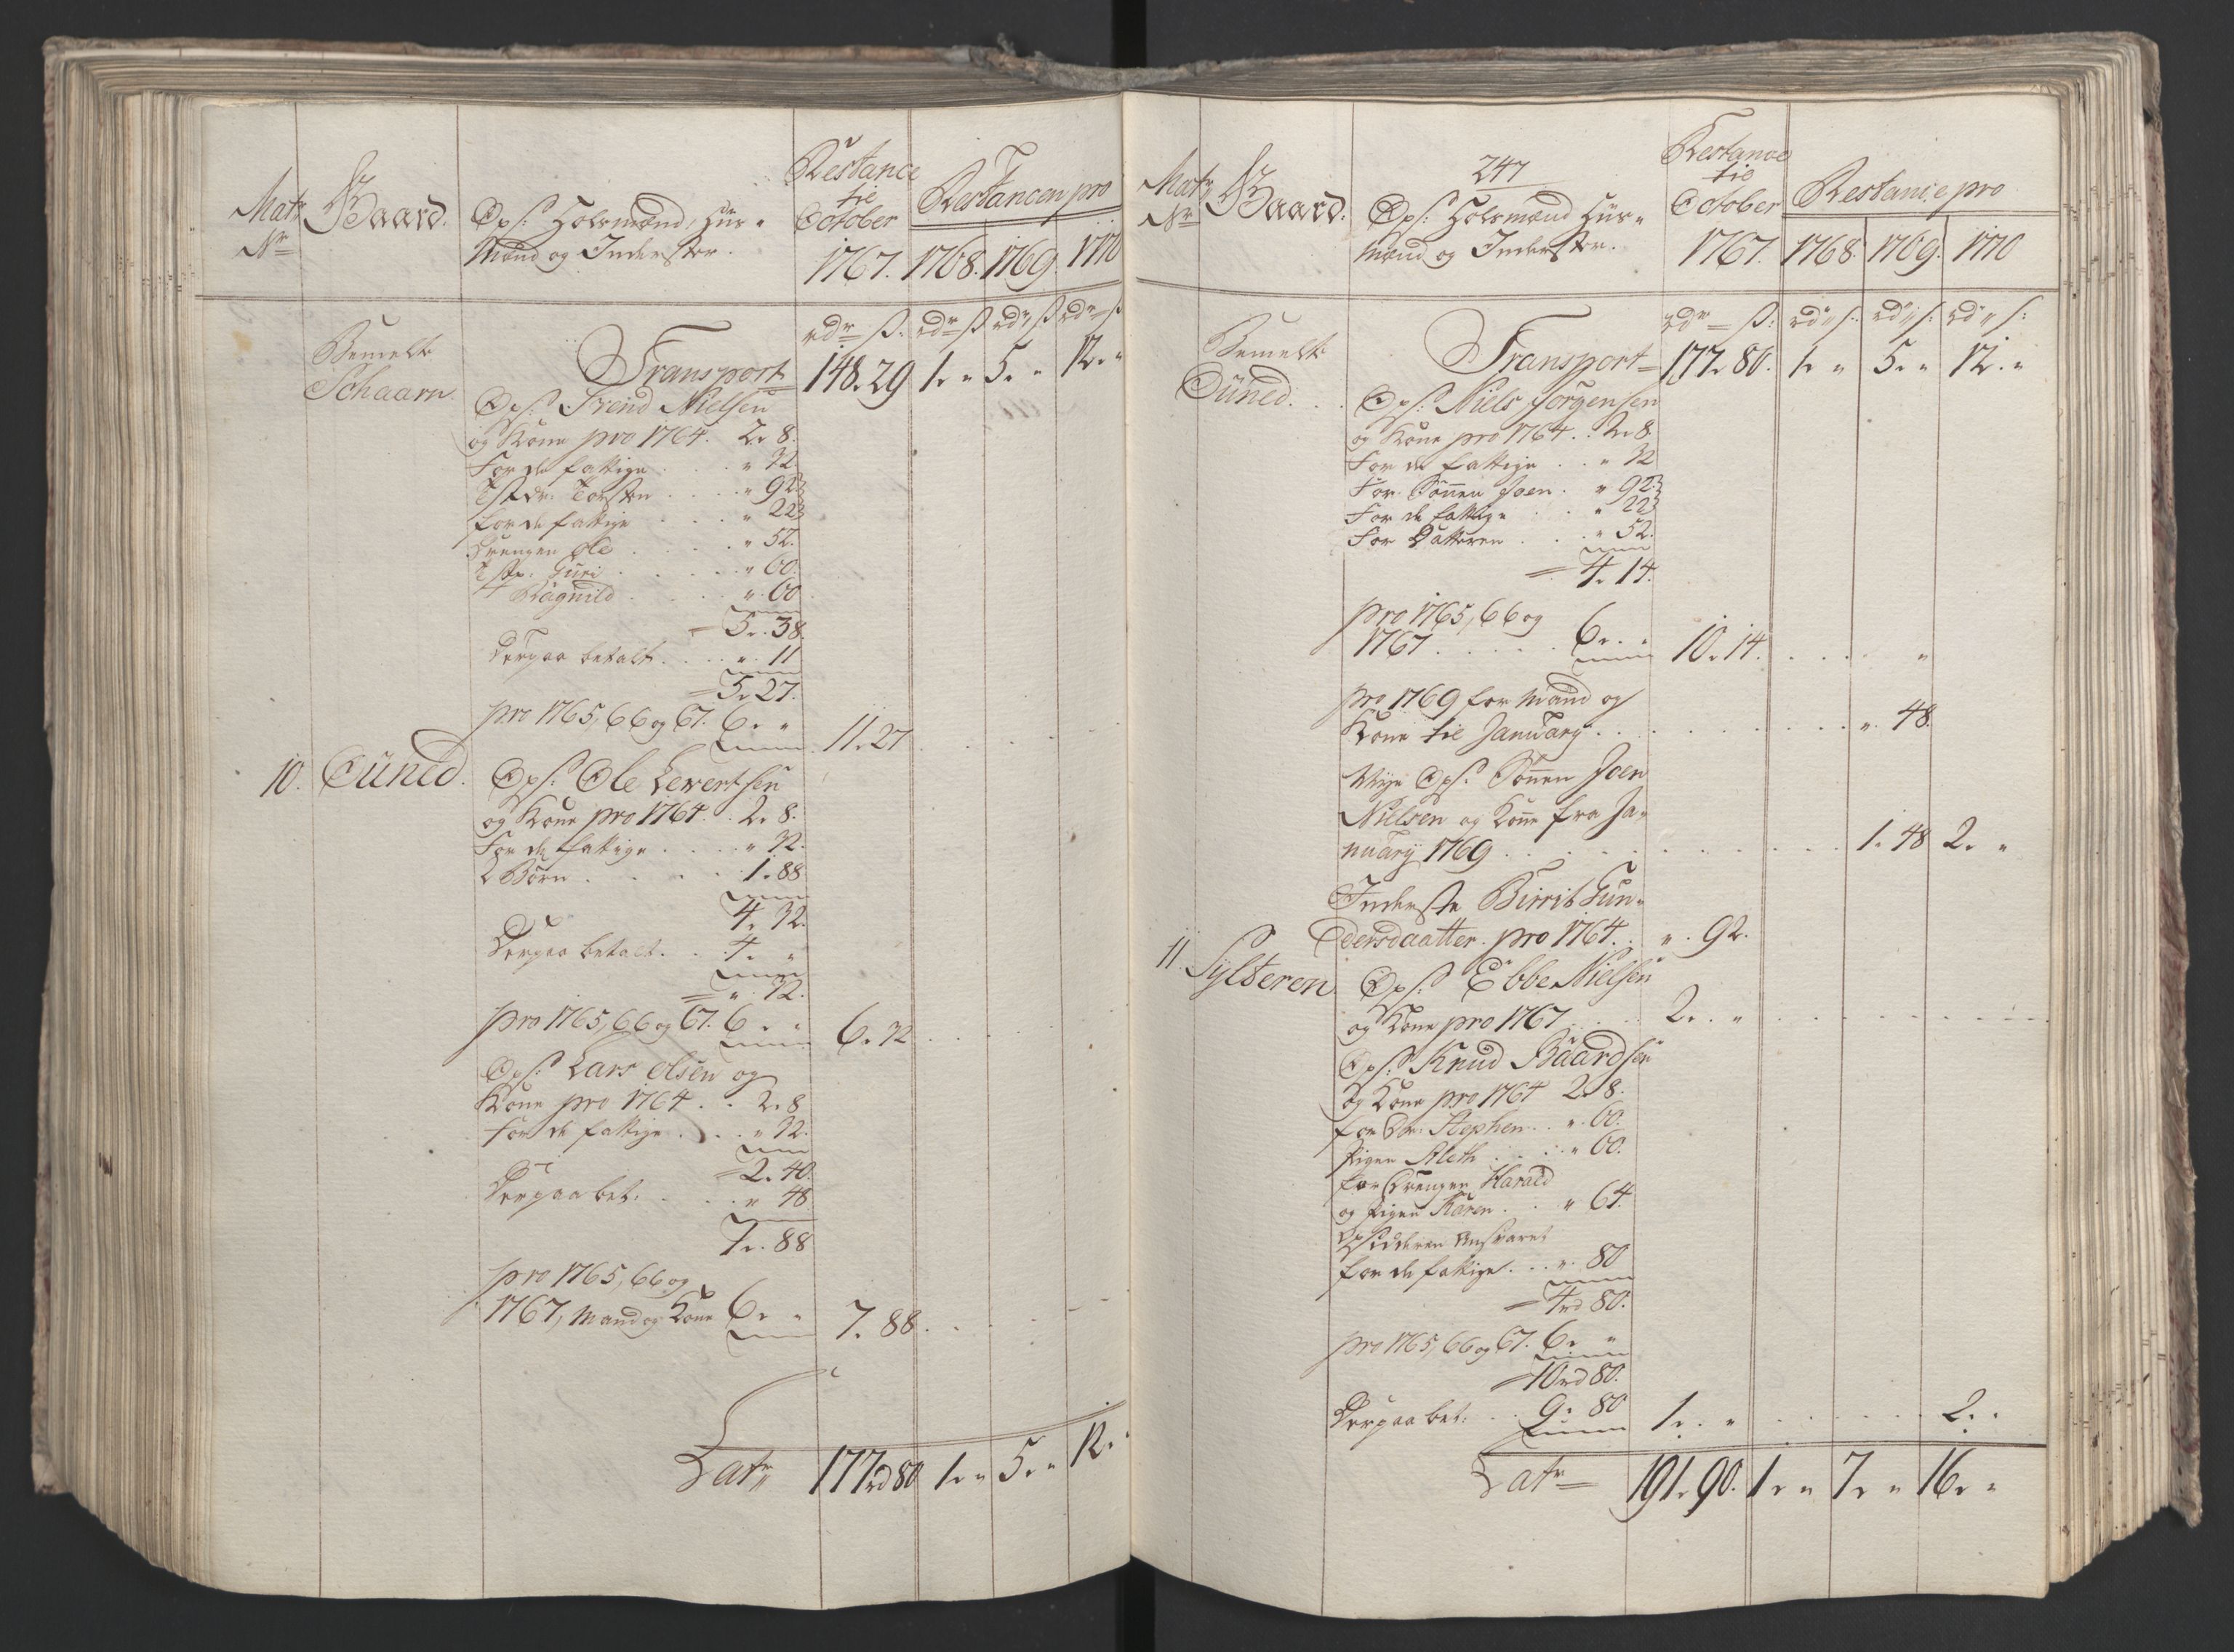 Matr Nr
Gaard.
Ops: Holsmænd, Hus-
Mænd og Inderster.
Restance
til
October
1767.
Restancen pro
1768. 1769. 1770
rdr ß. rdr ß rdr ß rdr ß
Bemelte
Schaarn.
Transport 148. 29 1. " 5. " 12. "
Ops: Trend Nielsen
og Kone pro 1764. 2. 8.
For de fattige . . . " 32.
Tstdr. Torsten . . . " 92
for de fattige . . . " 22
Drengen Ole . . . " 52.
Tstp. Guri . . . " 60.
Ragnild . . . " 60
5. 38.
Derpaa betalt . . . " 11
5. 27.
pro 1765, 66 og 67. 6. " 11. 27
10. Sûned.
Ops: Ole Severtsen
og Kone pro 1764. . 2. 8.
For de fattige . . . " 32.
2 Børn . . . 1. 88
4. 32.
Derpaa betalt . . 4. "
" 32.
pro 1765, 66 og 67. 6. " 6. 32
Ops: Lars Olsen og
Kone pro 1764 . . 2. 8
For de fattige . . . " 32.
2. 40.
Derpaa bet. . . . " 48
1. 88
pro 1765, 66 og
1767, Mand og Kone 6. " 7. 88
Latr 177rd 80 1. " 5. " 12. "
247
Matr Nr
Gaard.
Ops: Holsmænd Hus-
Mænd og Inderster.
Restance
til
October
1767.
Restance pro
1768. 1769. 1770
rdr ß: rd ß: rd ß: rd ß:
Bemelte
Sûned. . .
Transport 177. 80. 1. " 5. " 12. "
Ops: Niels Jörgensen
og Kone pro 1764 . . 2. 8.
For de fattige . . " 32
For Sönnen Joen . " 92
For de fattige . . " 22
For Datteren . . . " 52.
4. 14.
pro 1765, 66 og
1767 . . . . . 6. " 10. 14. . . . "
pro 1769 for Mand og
Kone til January . . . . " 48.
Nye Ops: Sönnen Joen
Nielsen og Kone fra Ja-
nuarij 1769 . . . . 1. 48 2. "
Inderste Birrit Gun-
dersdaatter. pro 1764 . . " . 92.
11. Sylteren
Ops: Ebbe Nielsen
og Kone pro 1767 . . . 2. "
Ops: Knud Baardsen
og Kone pro 1764 2. 8.
for Stephen . . " 60.
Pigen Aleth . . . " 60.
for Drengen Harald
og Pigen Karen . . " 64.
for de fattige . . . " 80
4rd 80.
pro 1765, 66 og 67. 6. "
10rd 80.
Derpaa bet: . . 9. 80 1. " . . . . 2. "
Latr 191. 90. 1. " 7. " 16. "